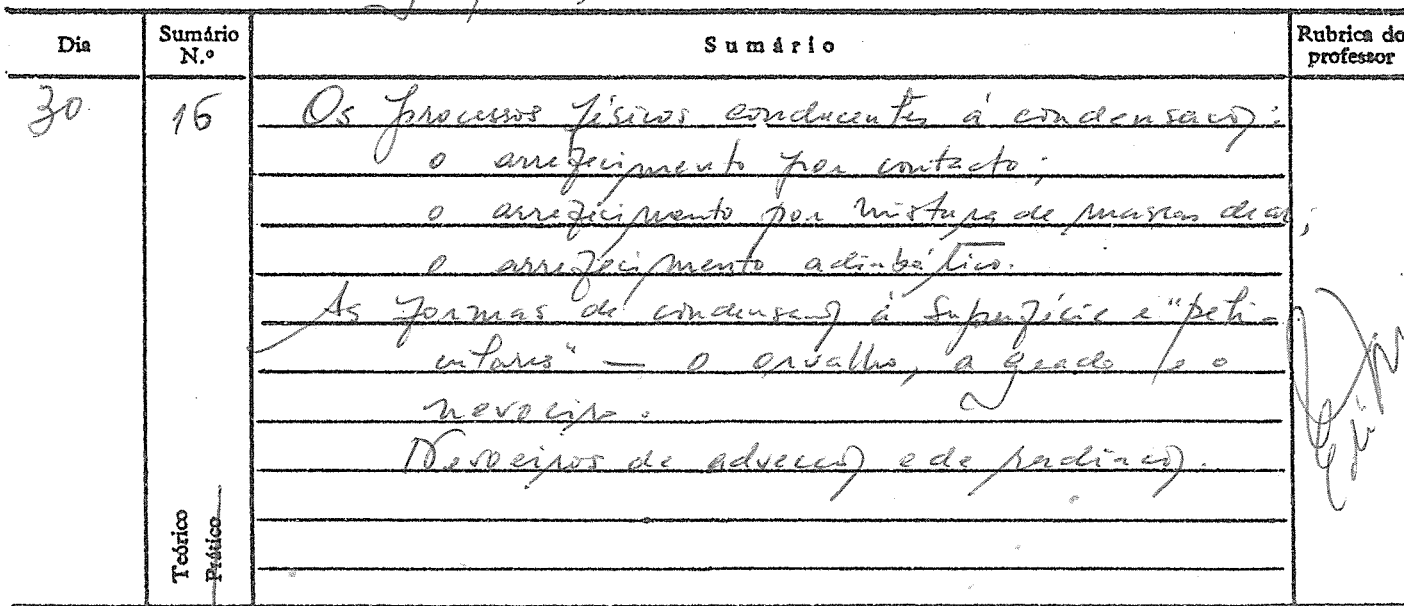 Dia Sumário N.º Sumário Rubrica do professor
30 16 Os processos físicos conducentes à condensação:
o arrefecimento por contacto;
o arrefecimento por mistura de massas de ar;
o arrefecimento adiabático.
As formas de condensação à superfície e
— o orvalho, a geada e o
nevoeiro.
Nevoeiros de advecção e de radiação.
Teórico
Prático